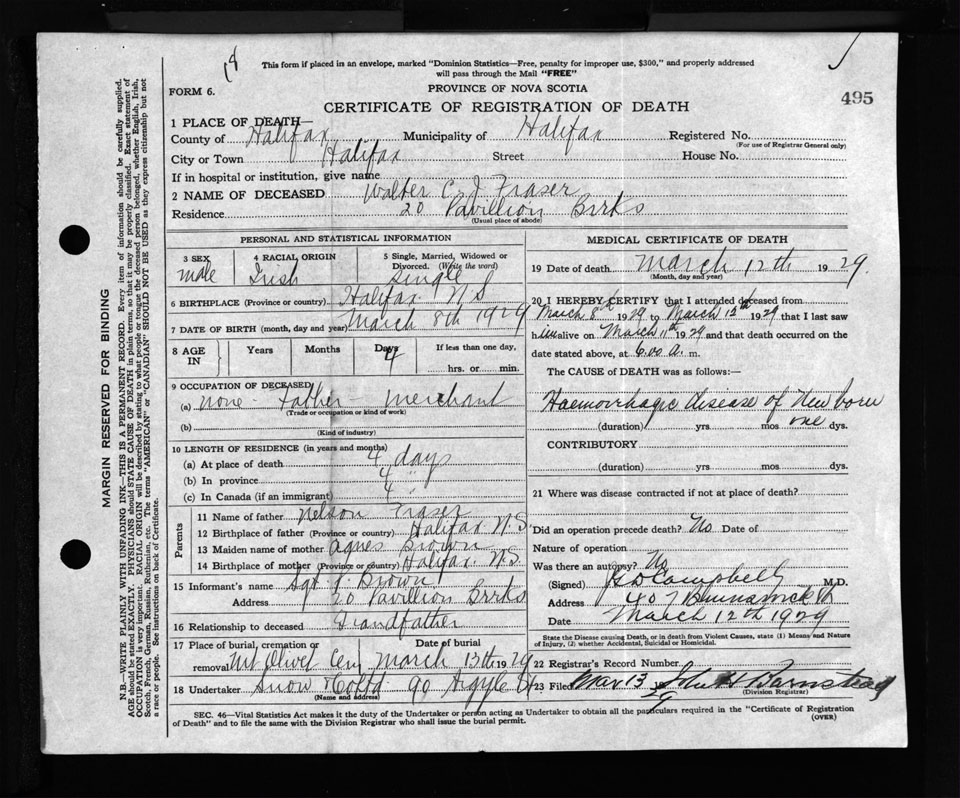 18
This form if placed in an envelope, marked "Dominion Statistics—Free, penalty for improper use, $300," and properly addressed
will pass through the Mail "FREE"
FORM 6.
PROVINCE OF NOVA SCOTIA
CERTIFICATE OF REGISTRATION OF DEATH
495
1 PLACE OF DEATH—
County of Halifax Municipality of Halifax Registered No.
(For use of Registrar General only)
City or Town Halifax Street House No.
If in hospital or institution, give name
2 NAME OF DECEASED Walter C. J. Fraser
Residence 20 Pavillion Brrks
(Usual place of abode)
PERSONAL AND STATISTICAL INFORMATION
3 SEX 4 RACIAL ORIGIN 5 Single, Married, Widowed or
Divorced. (Write the word)
male Irish Single
6 BIRTHPLACE (Province or country) Halifax N.S
7 DATE OF BIRTH (month, day and year) March 8th 1929
8 AGE IN Years Months Days 4 If less than one day,
hrs. or min.
9 OCCUPATION OF DECEASED
(a) none - Father - merchant
(Trade or occupation or kind of work)
(b)
(Kind of industry)
10 LENGTH OF RESIDENCE (in years and months)
(a) At place of death 4 days
(b) In province 4 "
(c) In Canada (if an immigrant) 4 "
Parents
11 Name of father Nelson Fraser
12 Birthplace of father (Province or country) Halifax N.S.
13 Maiden name of mother Agnes Brown
14 Birthplace of mother (Province or country) Halifax N.S.
15 Informant's name Sgt J. Brown
Address 20 Pavillion Brrks
16 Relationship to deceased Grandfather
17 Place of burial, cremation or Date of burial
removal Mt Olivet Cem March 13th 1929
18 Undertaker Snow & Co Ltd 90 Argyle St
(Name and address)
MEDICAL CERTIFICATE OF DEATH
19 Date of death March 12th 1929
(Month, day and year)
20 I HEREBY CERTIFY that I attended deceased from
March 8th 1929 to March 12th 1929 that I last saw
him alive on March 11th 1929 and that death occurred on the
date stated above, at 6.00 a. m.
The CAUSE of DEATH was as follows:—
Haemorrhagic disease of New born
(duration) yrs mos one dys.
CONTRIBUTORY
(duration) yrs mos dys.
21 Where was disease contracted if not at place of death?
Did an operation precede death? No Date of
Nature of operation
Was there an autopsy? No
(Signed) Campbell M.D.
Address 407 Brunswick St
Date March 12th 1929
State the Disease causing Death, or in death from Violent Causes, state (1) Means and Nature
of Injury, (2) whether Accidental, Suicidal or Homicidal.
22 Registrar's Record Number
23 Filed Mar 13 29 John H Barnstead
(Division Registrar)
SEC. 46—Vital Statistics Act makes it the duty of the Undertaker or person acting as Undertaker to obtain all the particulars required in the "Certificate of Registration
of Death" and to file the same with the Division Registrar who shall issue the burial permit.
(OVER)
MARGIN RESERVED FOR BINDING
N.B.—WRITE PLAINLY WITH UNFADING INK—THIS IS A PERMANENT RECORD. Every item of information should be carefully supplied.
AGE should be stated EXACTLY. PHYSICIANS should STATE CAUSE OF DEATH in plain terms, so that it may be properly classified. Exact statement of
OCCUPATION is very important. RACIAL ORIGIN will be described by stating to what people or tongue the deceased person belonged, whether English, Irish,
Scotch, French, German, Russian, Ruthenian, etc. The terms "AMERICAN" or "CANADIAN" SHOULD NOT BE USED as they express citizenship but not
a race or people. See instructions on back of Certificate.